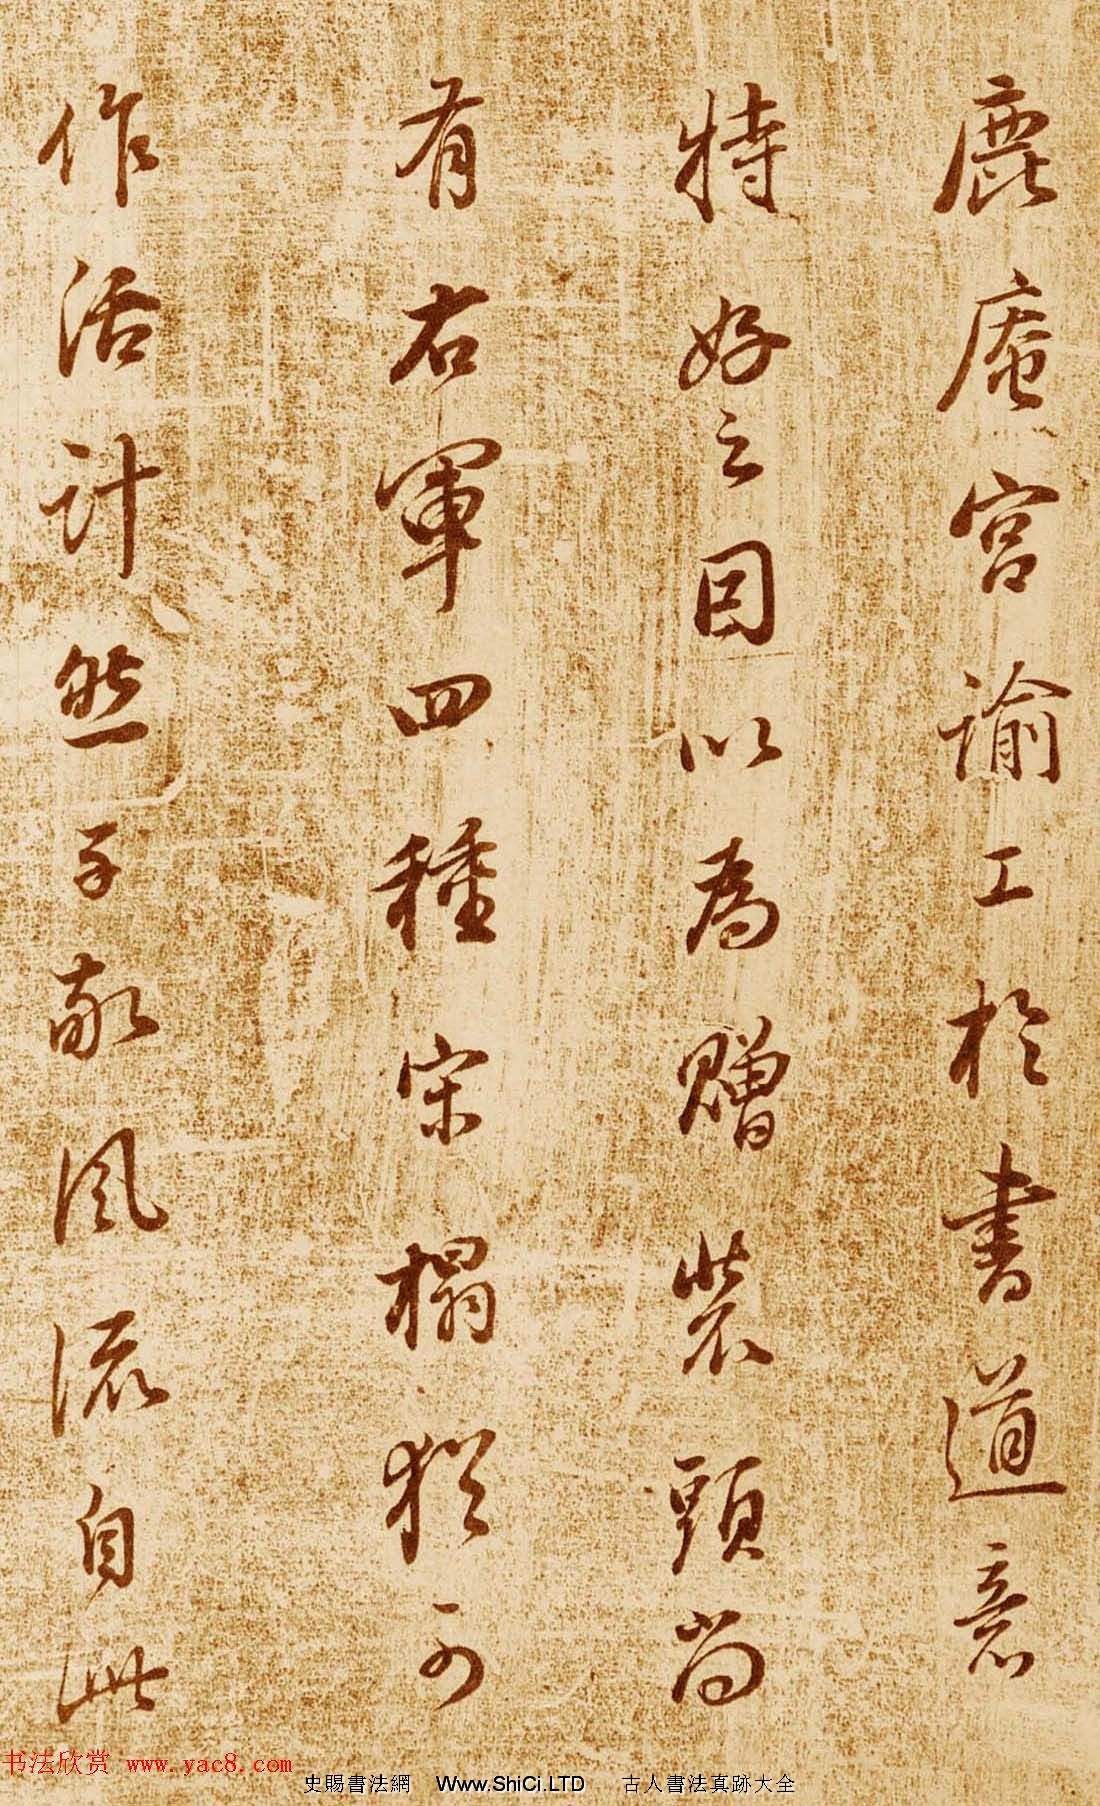 鹿庵宮諭工於書道意
特好之因以為贈裝頭尚
有右軍四種宋榻猶可
作活計然子敬風流自此
书法欣赏 www.yac8.com
史賜書法網 Www.ShiCi.LTD 古人書法真跡大全